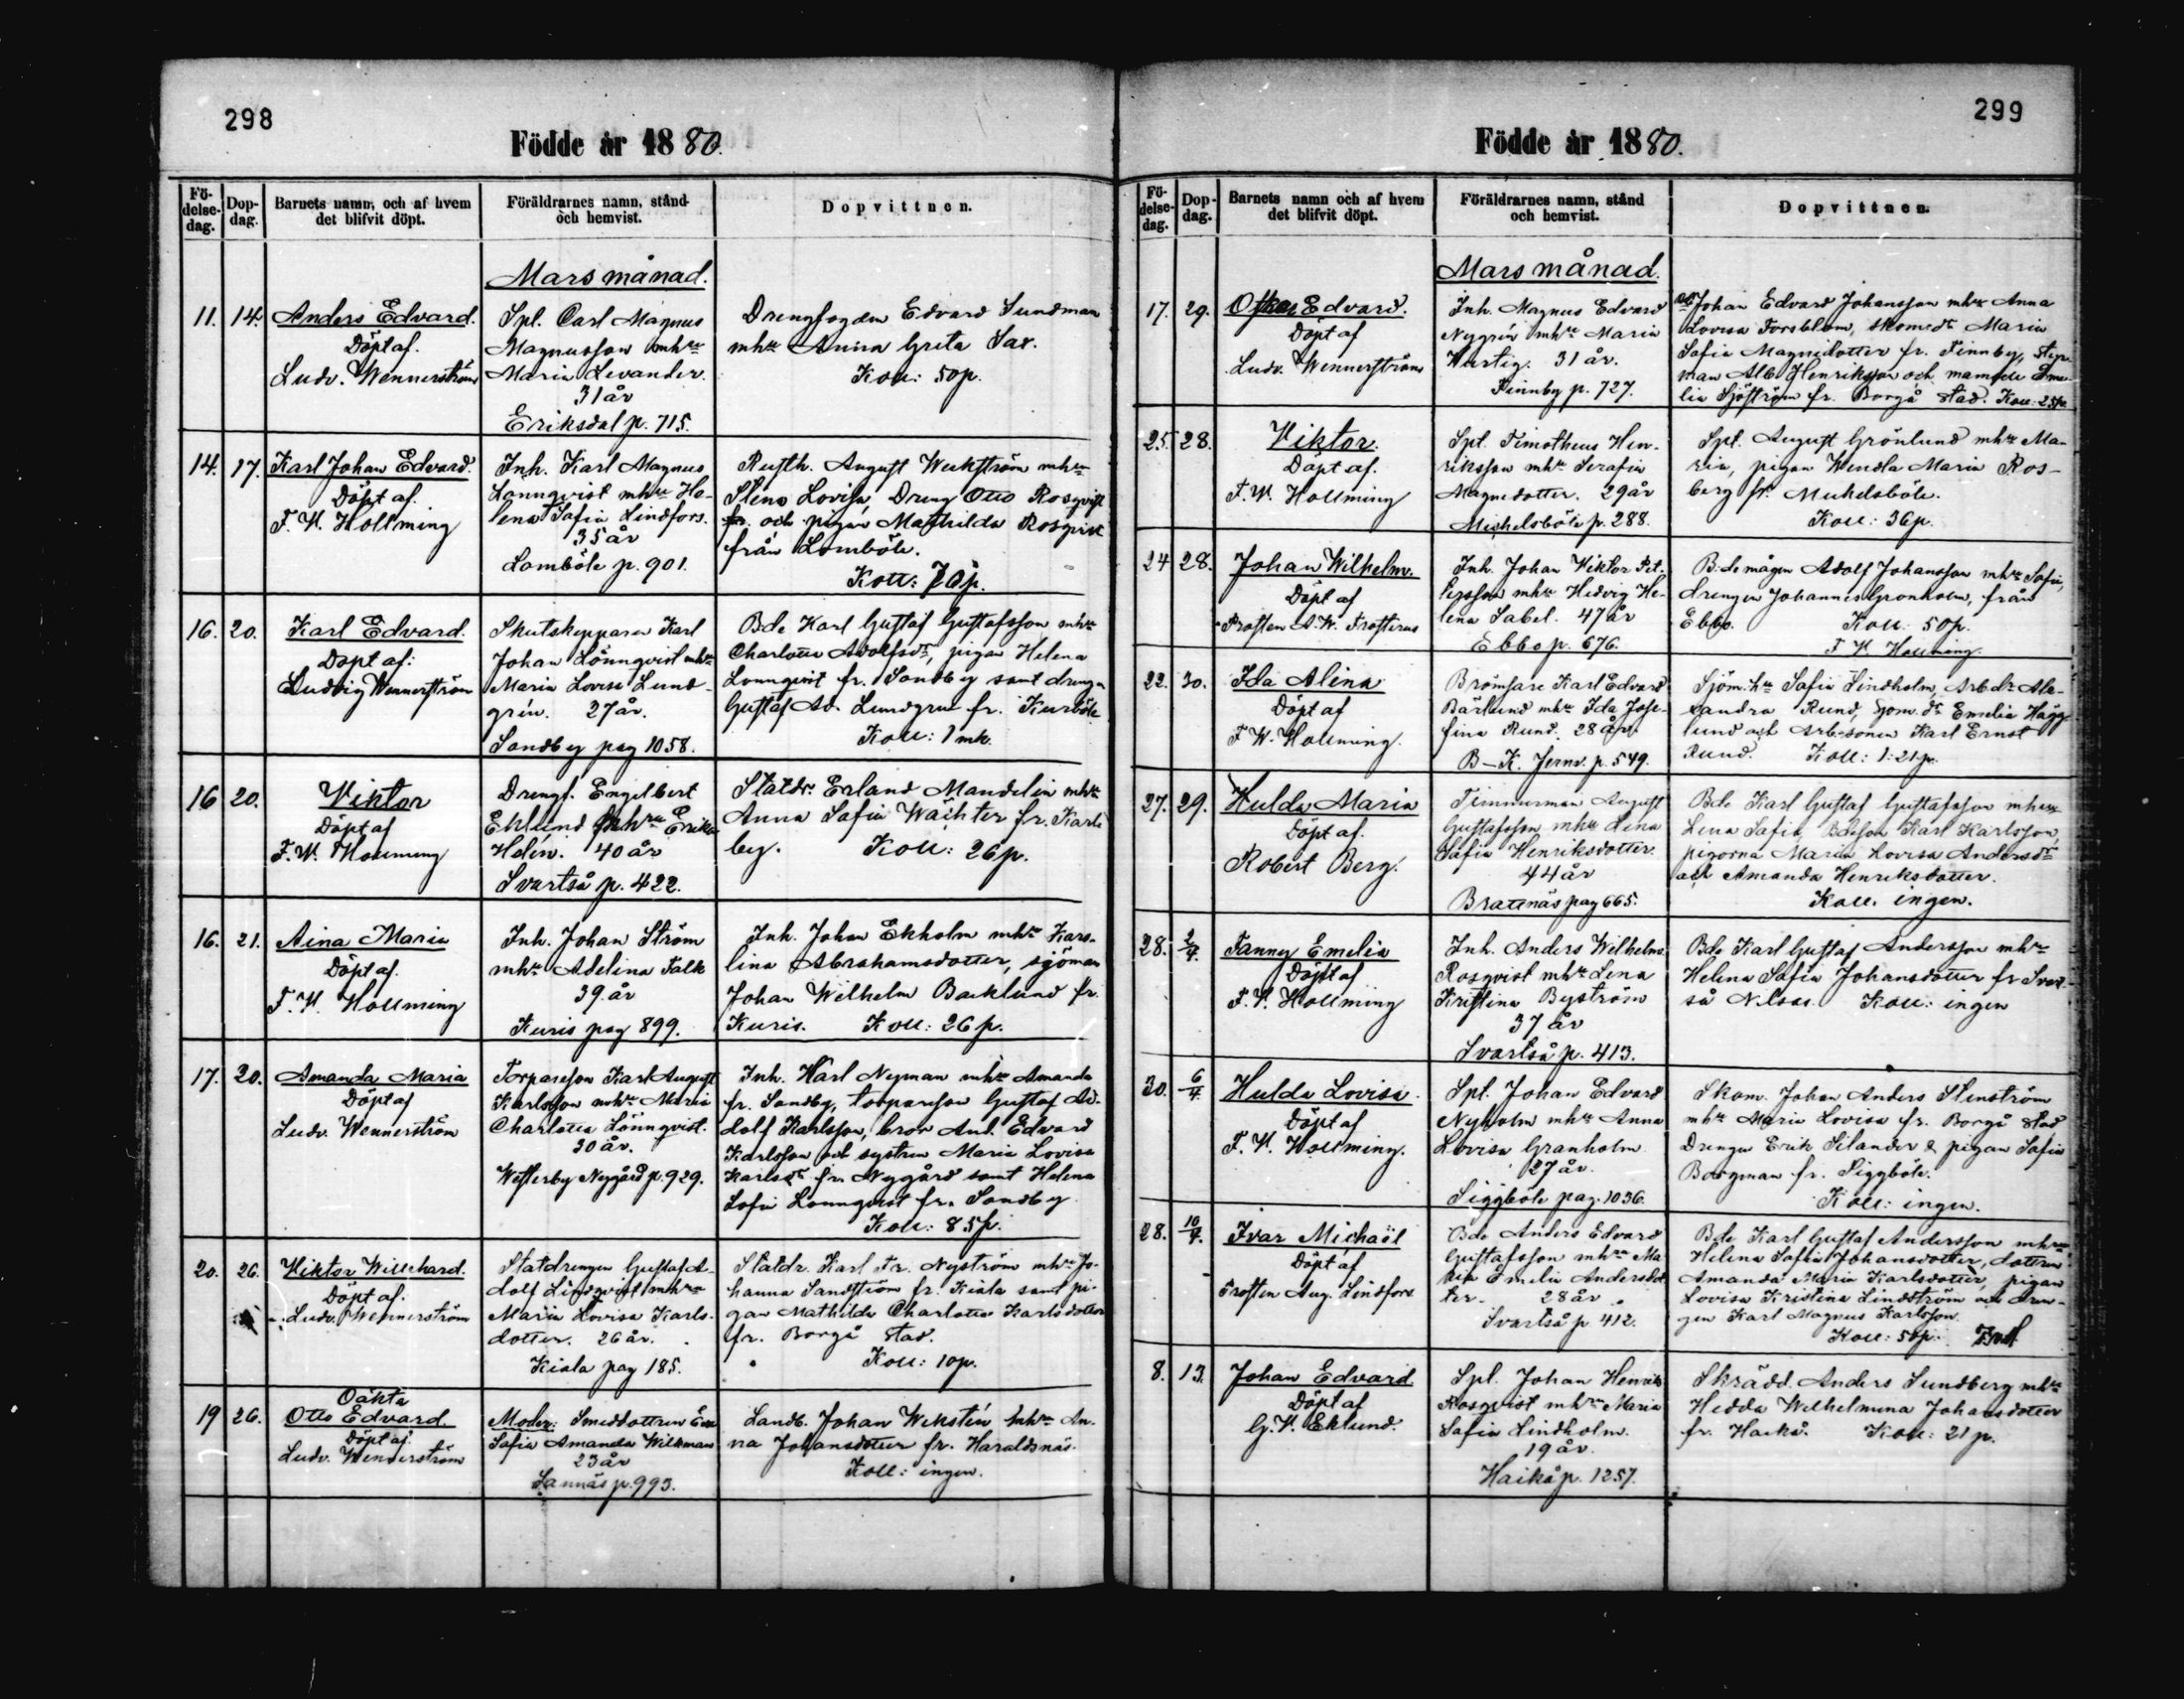 298
Födde år 1880.
Fö-
delse-
dag.
Dop-
dag.
Barnets namn, och af hvem
det blifvit döpt.
Föräldrarnes namn, stånd
och hemvist.
Dopvittnen.
Mars månad.
11. 14.
Anders Edvard.
Döpt af.
Ludv. Wennerström
Spl. Carl Magnus
Magnusson mhu
Maria Levander.
31 år
Eriksdal p. 715.
Drengfogden Edvard Sundman
mhu Anna Greta Sax.
Koll: 50p.
14. 17.
Karl Johan Edvard.
Döpt af.
F. W. Hollming
Inh. Karl Magnus
Lönnqvist mhu He-
lena Sofia Lindfors.
35 år
Lomböle p. 901.
Rusth. August Weckström mhu
Stena Lovisa, Dreng Otto Rosqvist
och pigan Mathilda Rosqvist
från Lomböle.
Koll: 70p.
16. 20.
Karl Edvard.
Döpt af:
Ludvig Wennerström
Skutskepparen Karl
Johan Lönnqvist mhu
Maria Lovisa Lund-
grén. 27 år.
Sondby pag 1058.
Bde Karl Gustaf Gustafsson mhu
Charlotta Adolfsdr, pigan Helena
Lönnqvist fr. Sondby samt drengen
Gustaf Ad. Lundgren fr. Kurböle
Koll: 1 mk.
16 20.
Viktor
Döpt af
F. W. Hollming
Drengf. Engelbert
Eklund mhu Erika
Helén. 40 år
Svartså p. 422.
Statdr. Erland Mandelin mhu
Anna Sofia Wächter fr. Karls
by. Koll: 26p.
16. 21.
Aina Maria
Döpt af.
F. W. Hollming
Inh. Johan Ström
mhu Adelina Falk
39 år
Kuris pag 899.
Inh. Johan Ekholm mhu Karo-
lina Abrahamsdotter, sjöman
Johan Wilhelm Backlund fr.
Kuris. Koll: 26p.
17. 20.
Amanda Maria
Döpt af
Ludv. Wennerström
Torpareson Karl August
Karlsson mhu Maria
Charlotta Lönnqvist.
30 år.
Westerby Nygård p. 929.
Inh. Karl Nyman mhu Amanda
fr. Sondby, torpareson Gustaf Ad-
dolf Karlsson, bror And. Edvard
Karlsson och systern Maria Lovisa
Karlsdr fr. Nygård samt Helena
Sofia Lönnqvist fr. Sondby
Koll: 85p.
20. 26.
Viktor Willehard.
Döpt af.
Ludv. Wennerström
Statdrengen Gustaf A-
dolf Lindqvist mhu
Maria Lovisa Karls-
dotter. 26 år.
Kiala pag 185.
Statdr. Karl Fr. Nyström mhu Jo-
hanna Sandström fr. Kiala samt pi-
gan Mathilda Charlotta Karlsdotter
fr. Borgå stad.
Koll: 10p.
19 26.
Oäkta
Otto Edvard.
Döpt af.
Ludv. Wennerström
Moder: Smeddottren Eva
Sofia Amanda Wikman
23 år
Sannäs p. 993.
Landb. Johan Weksten mhu An-
na Johansdotter fr. Haraldsnäs.
Koll: ingen.
299
Födde år 1880.
Fö-
delse-
dag.
Dop-
dag.
Barnets namn och af hvem
det blifvit döpt.
Föräldrarnes namn, stånd
och hemvist.
Dopvittnen.
Mars månad.
17. 29.
Oskar Edvard.
Döpt af
Ludv. Wennerström
Inh. Magnus Edvard
Nygrén mhu Maria
Hurtig. 31 år.
Finnby p. 727.
Johan Edvard Johansson mhu Anna
Lovisa Forsblom, skom.dr Maria
Sofia Magnidotter fr. Finnby, styr-
man Alb. Henriksson och mamsell Eme-
lia Sjöström fr. Borgå stad. Koll: 25p.
25. 28.
Viktor
Döpt af.
F. W. Hollming
Spl. Timotheus Hen-
riksson mhu Serafia
Magnedotter. 29 år
Michelsböle p. 288.
Spl. August Grönlund mhu Ma-
ria, pigan Wendla Maria Ros-
berg fr. Michelsböle.
Koll: 36p.
24 28.
Johan Wilhelm.
Döpt af
Prosten A. W. Frosterus
Inh. Johan Viktor Pet-
tersson mhu Hedvig He-
lena Sabel. 47 år
Ebbo p. 676.
Bdemågen Adolf Johansson mhu Sofia,
drengen Johannes Gronholm, från
Ebbo. Koll: 50p.
F. W. Hollming.
22. 30.
Ida Alina
Döpt af
F. W. Hollming.
Brömsare Karl Edvard
Barlund mhu Ida Jose-
fina Rund. 28 år.
B-K. Jernv. p. 549.
Sjöm.hu Sofia Lindholm, Arb.dr Ale-
xandra Rund, sjöm.dr Emelia Hägg-
lund och Arb-sonen Karl Ernst
Rund. Koll: 1:21p.
27. 29.
Hulda Maria
Döpt af.
Robert Berg.
Timmerman August
Gustafsson mhu Lena
Sofia Henriksdotter.
44 år
Brattnäs pag 665.
Bde Karl Gustaf Gustafsson mhu
Lena Sofia, Bdeson Karl Karlsson,
pigorna Maria Lovisa Andersdr
och Amanda Henriksdotter.
Koll. ingen.
28. 2/4.
Fanny Emelia
Döpt af
F. W. Hollming
Inh. Anders Wilhelm
Rosqvist mhu Lena
Kristina Byström
37 år
Svartså p. 413.
Bde Karl Gustaf Andersson mhu
Helena Sofia Johansdotter fr Svart-
så Nilsas. Koll: ingen
30. 6/4
Hulda Lovisa.
Döpt af
F. W. Hollming.
Spl. Johan Edvard
Nyholm mhu Anna
Lovisa Granholm
27 år.
Siggböle pag. 1036.
Skom. Johan Anders Stenström
mhu Maria Lovisa fr. Borgå stad
Drengen Erik Silander & pigan Sofia
Borgman fr. Siggböle.
Koll: ingen.
28. 10/4.
Ivar Michaël
Döpt af
Prosten Aug. Lindfors
Bde Anders Edvard
Gustafsson mhu Ma-
ria Emelia Andersdot-
ter. 28 år.
Svartså p. 412.
Bde Karl Gustaf Andersson mhu
Helena Sofia Johansdotter, dottren
Amanda Maria Karlsdotter, pigan
Lovisa Kristina Lindström och dren-
gen Karl Magnus Karlsson.
Koll: 50p.
8. 13.
Johan Edvard
Döpt af
G. W. Eklund.
Spl. Johan Henrik
Rosqvist mhu Maria
Sofia Lindholm.
19 år.
Haikå p. 1257.
Skrädd. Anders Sundberg mhu
Hedda Wilhelmina Johansdotter
fr. Haikå. Koll: 21p.